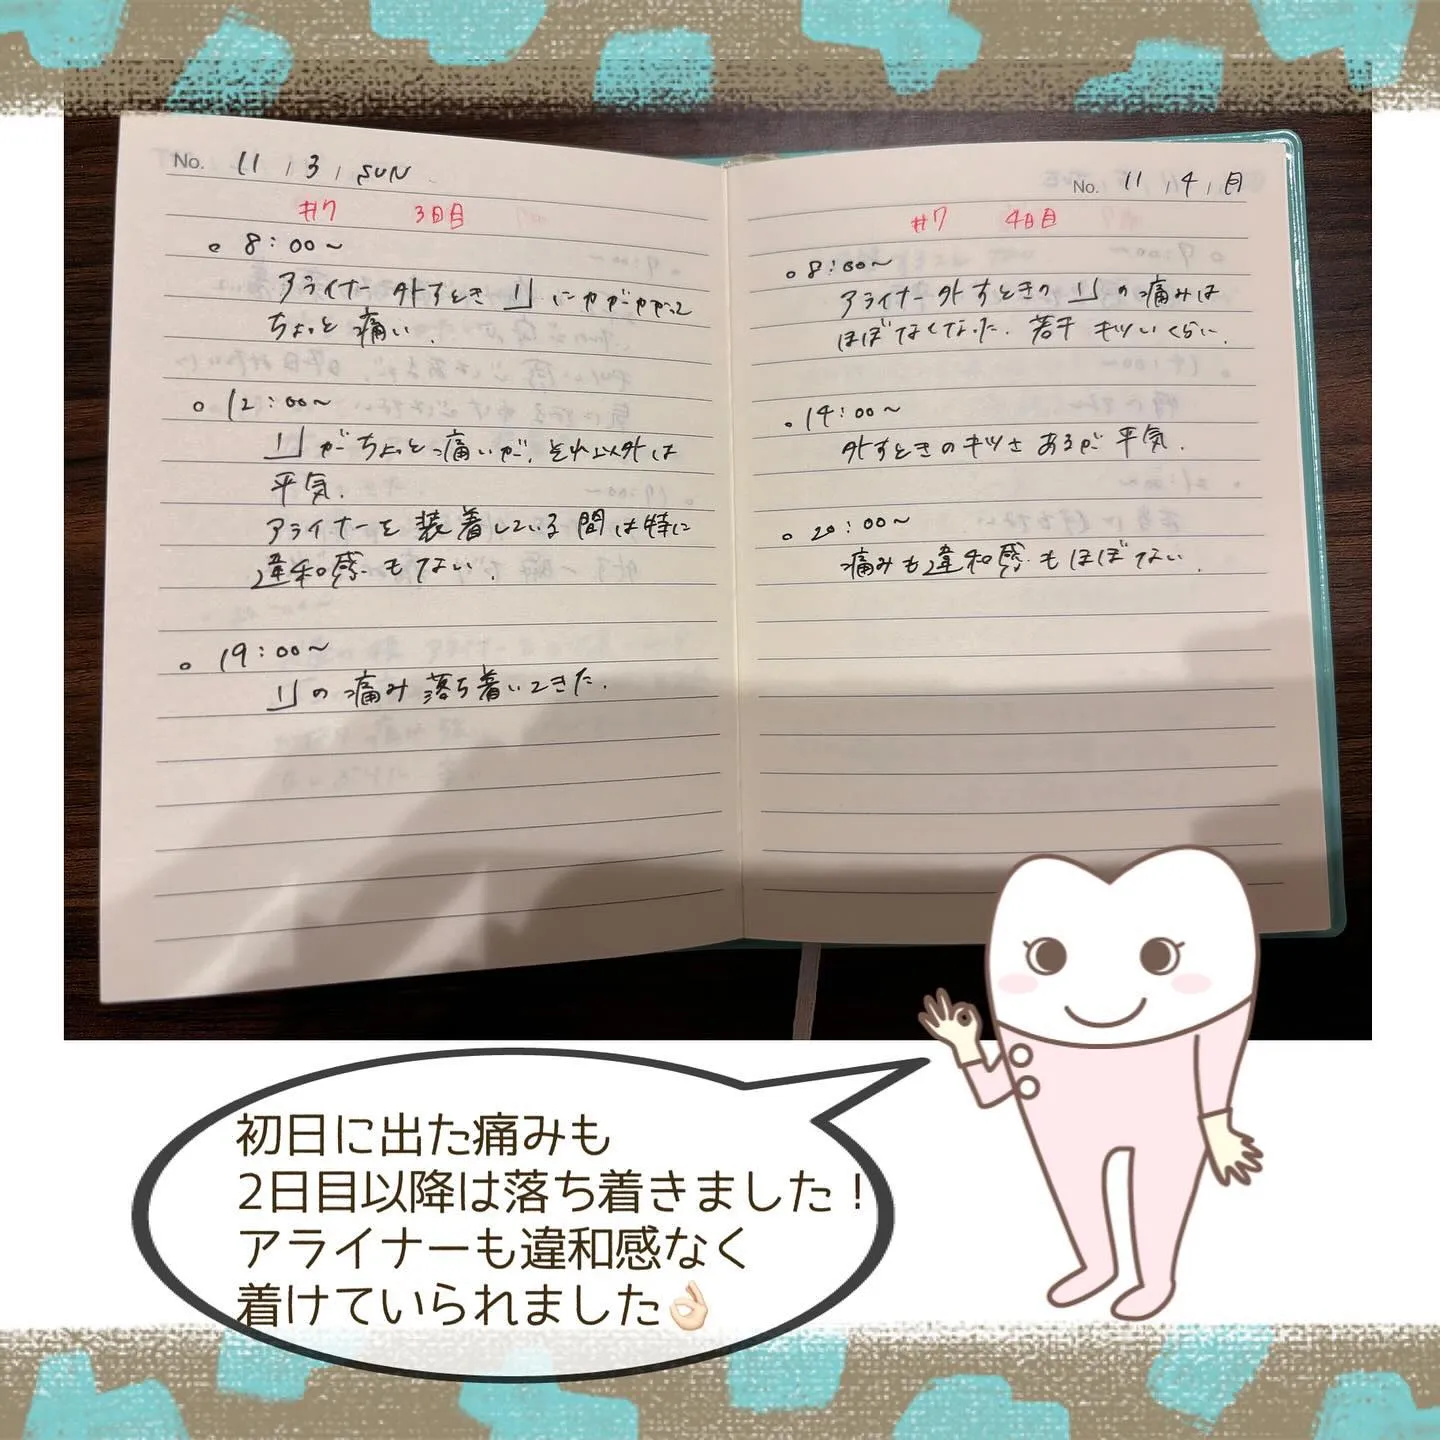 No. 11 / 3 / SUN
#7 3日目
○ 8:00〜
アライナー 外すとき 1」に
ちょっと 痛い.
○ 12:00〜
1」が ちょっと 痛いが、それ以外は
平気.
アライナーを 装着している 間は特に
違和感もない.
○ 19:00〜
1」の 痛み 落ち着いてきた.
No. 11 / 4 / 月
#7 4日目
○ 8:00〜
アライナー 外すときの 1」の 痛みは
ほぼなくなった. 若干 キツいくらい.
○ 14:00〜
外すときのキツさ あるが 平気.
○ 20:00〜
痛みも違和感もほぼない.
初日に出た痛みも
2日目以降は落ち着きました！
アライナーも違和感なく
着けていられました👌🏻